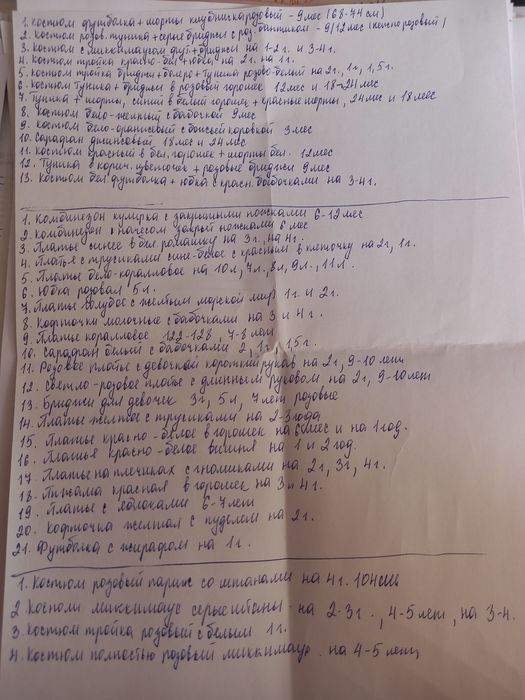 1. Костюм футболка + шорты клубничка розовый - 9 мес (68-74 см)
2. Костюм розов. туника + серые бриджи с роз. бантиком - 9/12 мес (нежно розовый)
3. Костюм с миккимаусом фут. + бриджи на 1-2 г. и 3-4 г.
4. Костюм тройка красно-бел + юбка на 2 г. на 1 г.
5. Костюм тройка бриджи + болеро + туника розово-белый на 2 г., 1 г., 1,5 г.
6. Костюм туника + бриджи в розовый горошек 12 мес и 18-24 мес
7. Туника + шорты, синий в белый горошек + красные шорты, 24 мес и 18 мес
8. Костюм бело-желтый с бабочкой 9 мес
9. Костюм бело-оранжевый с божьей коровкой 3 мес
10. Сарафан джинсовый 18 мес и 24 мес
11. Костюм красный в бел. горошек + шорты бел. 12 мес
12. Туника в корич. цветочек + розовые бриджи 9 мес
13. Костюм бел. футболка + юбка с красн. бабочками на 3-4 г.
1. Комбинезон кулирка с закрытыми ножками 6-12 мес
2. Комбинезон с начесом закрыт ножками 6 мес
3. Платье синее в бел ромашку на 3 г., на 4 г.
4. Платье с трусиками сине-белое с красным в клеточку на 2 г, 1 г.
5. Платье бело-коралловое на 10 л, 7 л., 8 л, 9 л., 11 л.
6. Юбка розовая 5 л.
7. Платье голубое с желтым морской мир 1 г. и 2 г.
8. Кофточки молочные с бабочками на 3 и 4 г.
9. Платье коралловое 122-128, 7-8 лет
10. Сарафан белый с бабочками 2, 1 г, 1,5 г.
11. Розовое платье с девочкой короткий рукав на 2 г, 9-10 лет
12. Светло-розовое платье с длинным рукавом на 2 г, 9-10 лет
13. Бриджи для девочек 3 г, 5 л, 7 лет розовые
14. Платье желтое с трусиками на 2-3 года
15. Платье красно-белое в горошек на 6 мес и на 1 год.
16. Платья красно-белое вишня на 1 и 2 год.
17. Платье на плечиках с гномиками на 2 г, 3 г, 4 г.
18. Пижама красная в горошек на 3 и 4 г.
19. Платье с яблоками 6-7 лет
20. Кофточка желтая с пуделем на 2 г.
21. Футболка с жирафом на 1 г.
1. Костюм розовый париж со штанами на 4 г. 104 см
2 Костюм миккимаус серые штаны на 2-3 г., 4-5 лет, на 3-4.
3. Костюм тройка розовый с белым 1 г.
4. Костюм полностью розовый миккимаус на 4-5 лет,